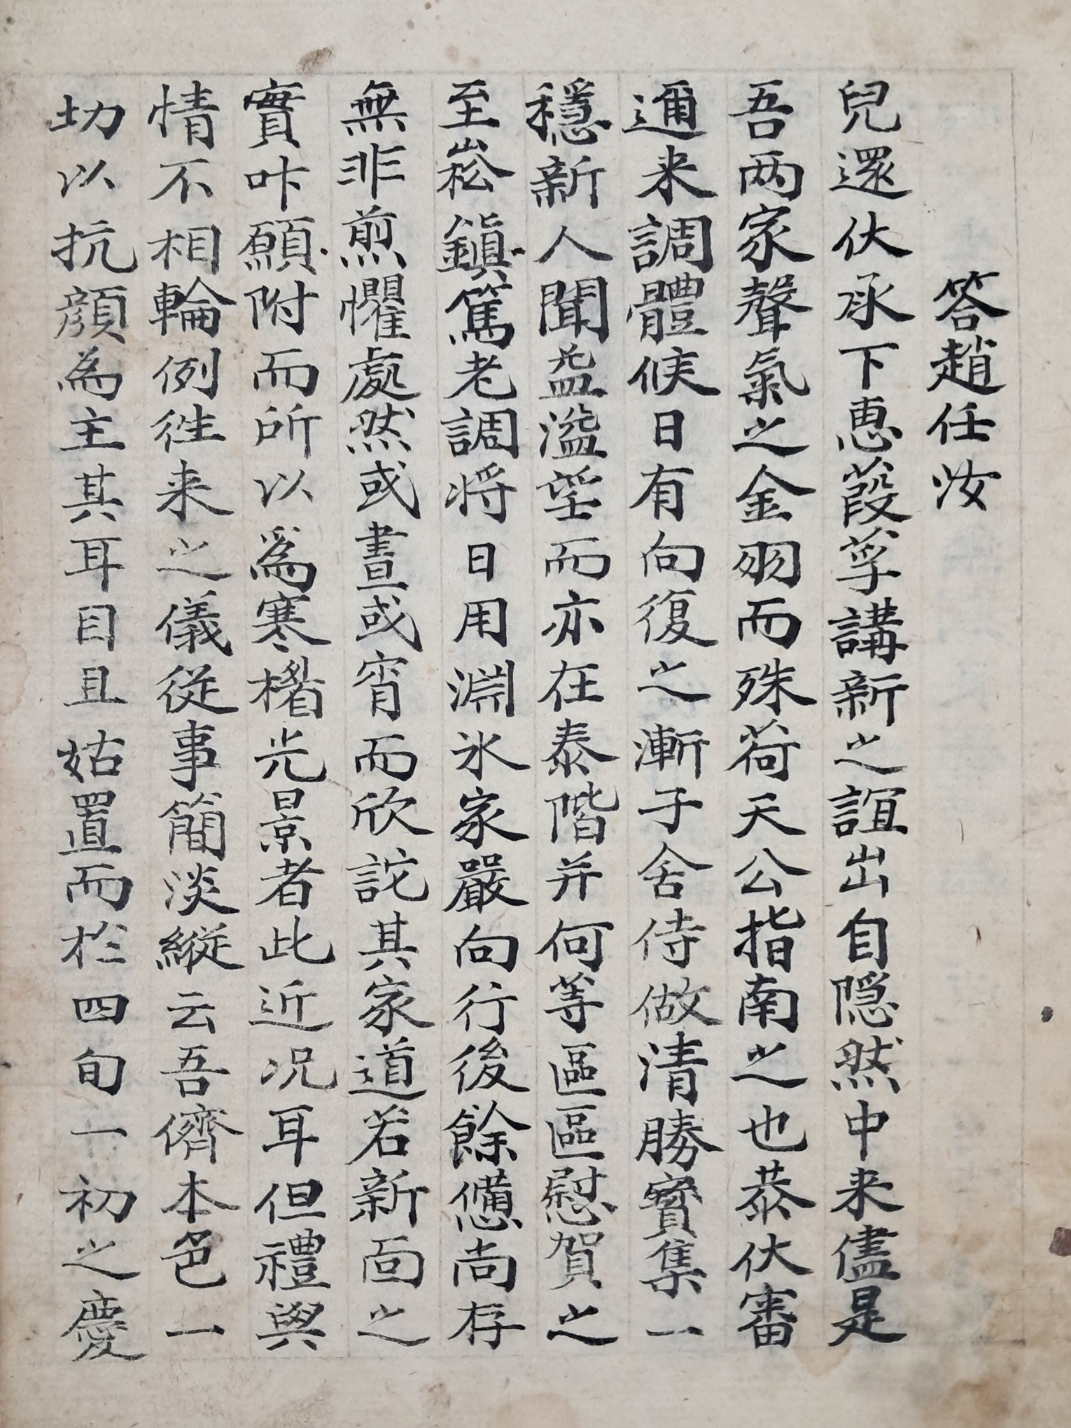 答趙任汝
兒還伏承下惠葭莩講新之誼出自隠然中来儘是
吾两家聲氣之金羽而殊荷天公指南之也恭伏審
邇来調體候日有向復之漸子舍侍做清勝實集一
穩新人聞益溢望而亦在泰階并何等區區慰賀之
至崧鎭篤老調将日用淵氷家嚴向行後餘憊尚存
無非煎懼處然或晝或宵而欣詑其家道若新面之
實咔願附而所以爲寒楷光景者此近况耳但禮與
情不相輪例徃来之儀従事簡淡縦云吾儕本色一
㘦以抗顔為主其耳目且姑置而扵四旬一初之慶